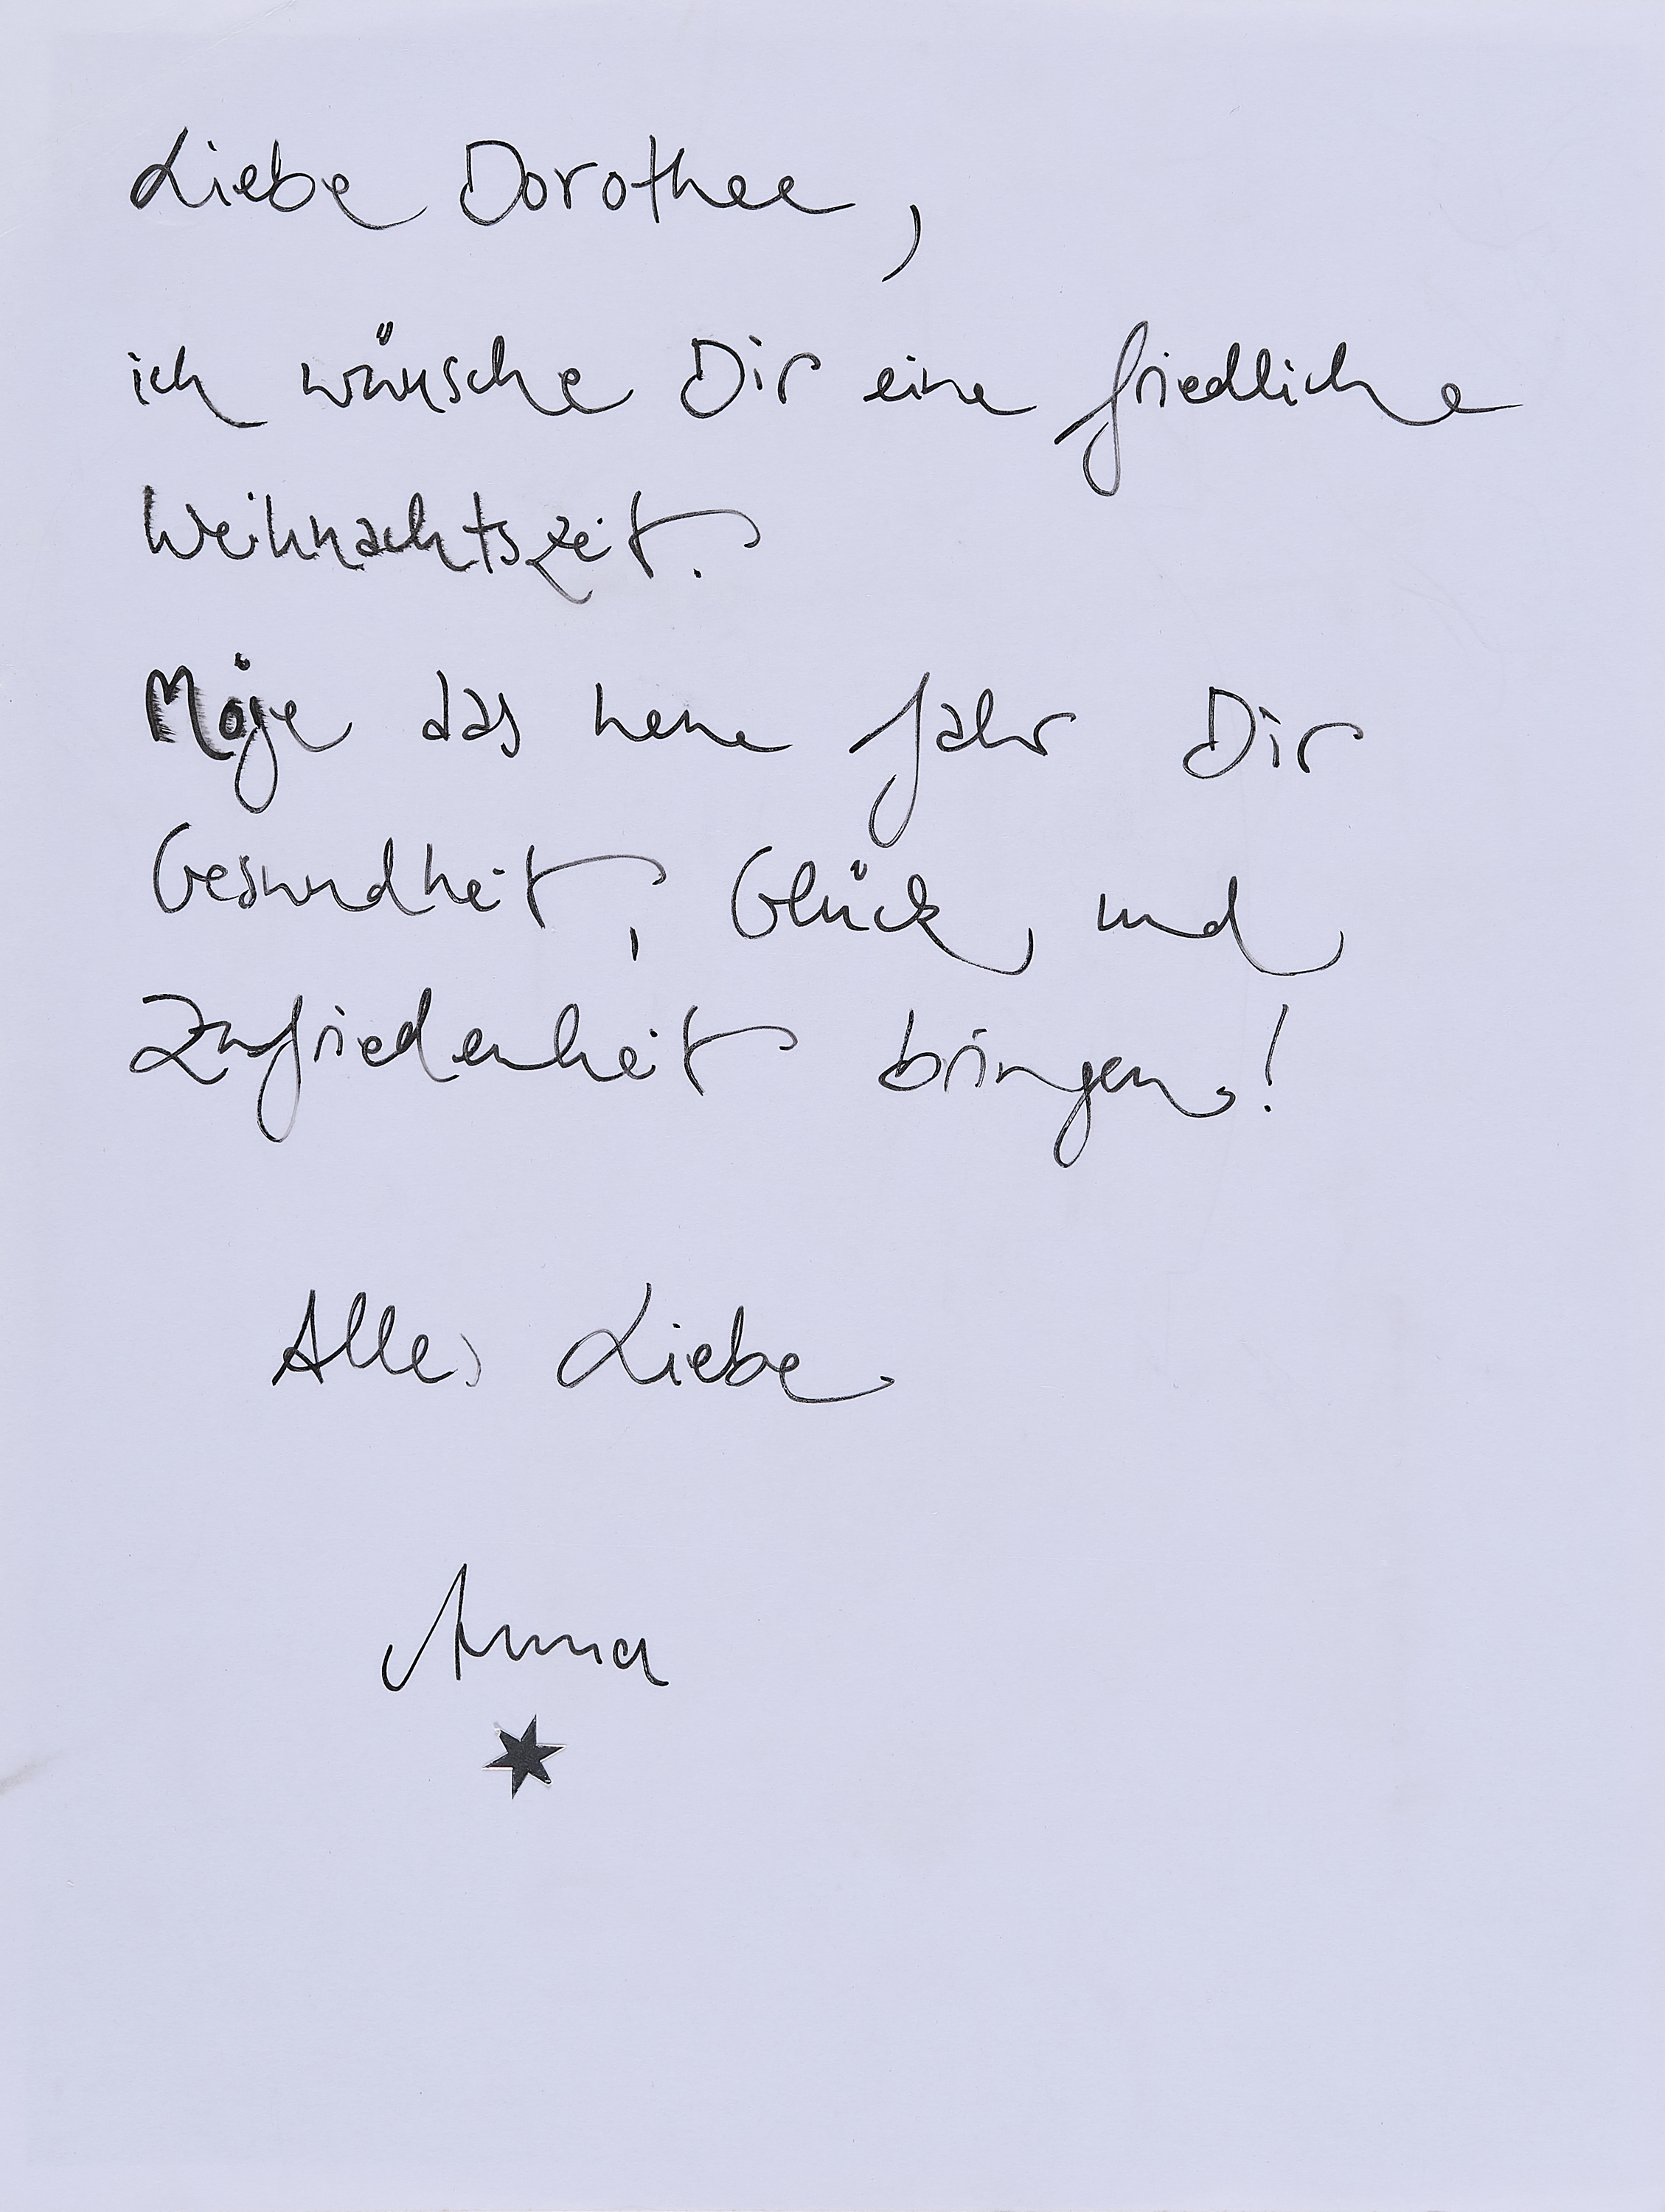 Liebe Dorothee,
ich wünsche Dir eine friedliche
Weihnachtszeit.
Möge das neue Jahr Dir
Gesundheit, Glück und
Zufriedenheit bringen!
Alles Liebe
Anna